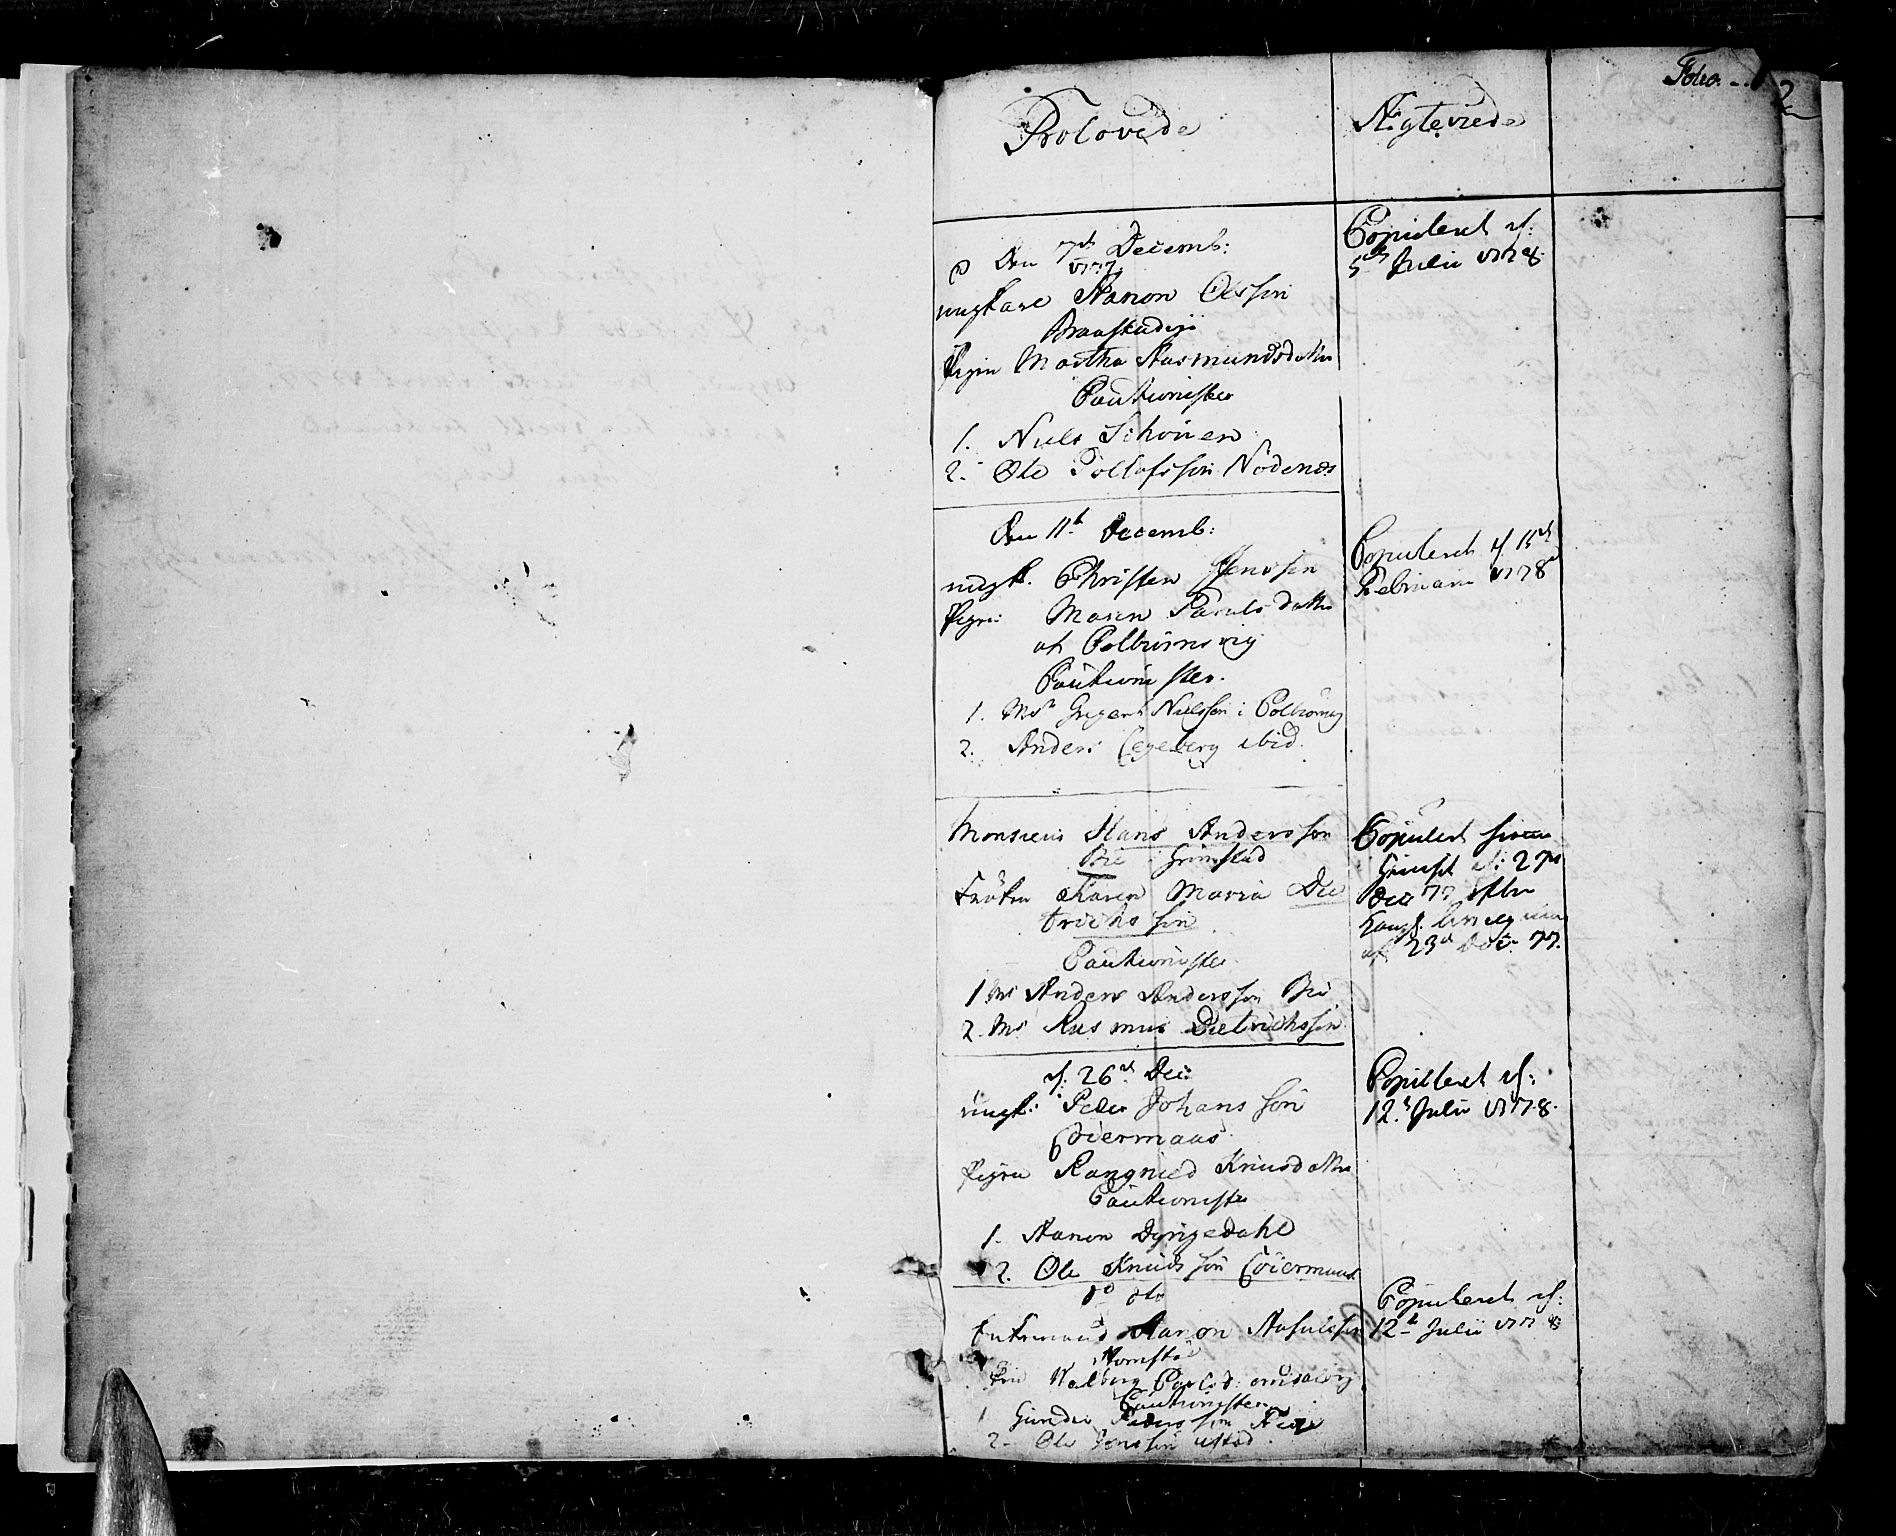 Folio 1
2
Trolovede
Ægteviede
Den 7de Decemb:
1777
ungkarl Aanon Olsson
Pigen Martha Aasmundsdatter
Cautionister
1. Niels Schouen
2. Ole Tollofsson Nødenes
Copuleret d:
5te Julii 1778
Den 11te Decemb:
ungk. Christen Jensson
Pigen Maren Pauls datter
af Colbiørnsvig
Cautionister.
1. Msr Gregers Nielsson i Colbiørnsvig
2. Anders Segeberg ibid.
Copuleret d 15de
Februarii 1778
Monsieur Hans Andersson
Bie Grimstad
Frøken Karen Maria Die
trichsson
Cautionister
1 Mr Anders Andersson Bie
2. Mr Rasmus Dietrichsson
Copuleret
Grimst. d: 27de
Dec 77 efter
Kongl.
af 23de Dec: 77.
d: 26de Dec:
ungk: Peder Johansson
Løvermaas
Pigen Rangnild Knudsdatter
Cautionister
1. Aanon Dyngedahl
2. Ole Knudsson
Copuleret d:
12te Julii 1778.
Enkemand Aanon
Pigen Walborg
Cautionister
1 Gunder Pedersson
2. Ole Jensson
Copuleret d:
12te Julii 1778